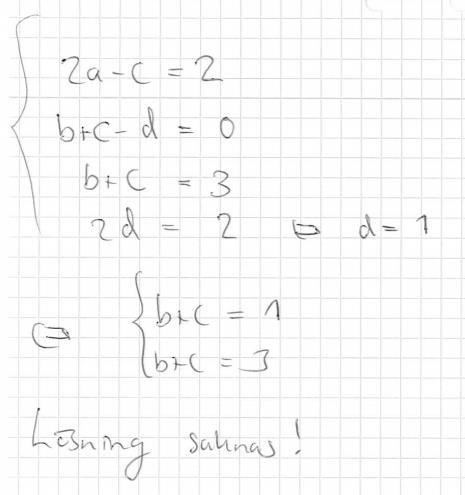 2a - c = 2
b+c - d = 0
b+c = 3
2d = 2 ⇔ d = 1
⇔ { b+c = 1
b+c = 3
Lösning saknas!